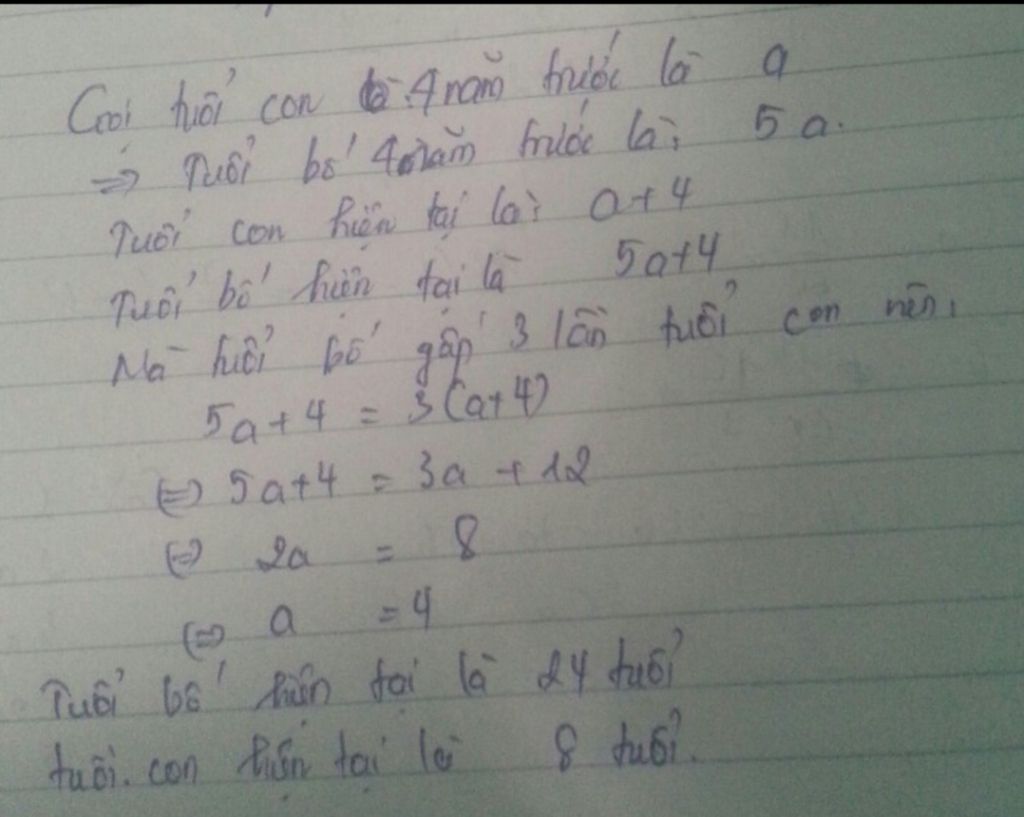 Gọi tuổi con 4 năm trước là a
=> Tuổi bố 4 năm trước là: 5a.
Tuổi con hiện tại là: a+4
Tuổi bố hiện tại là 5a+4
Mà tuổi bố gấp 3 lần tuổi con nên:
5a+4 = 3(a+4)
(=) 5a+4 = 3a + 12
(=) 2a = 8
(=) a = 4
Tuổi bố hiện tại là 24 tuổi
tuổi con hiện tại là 8 tuổi.